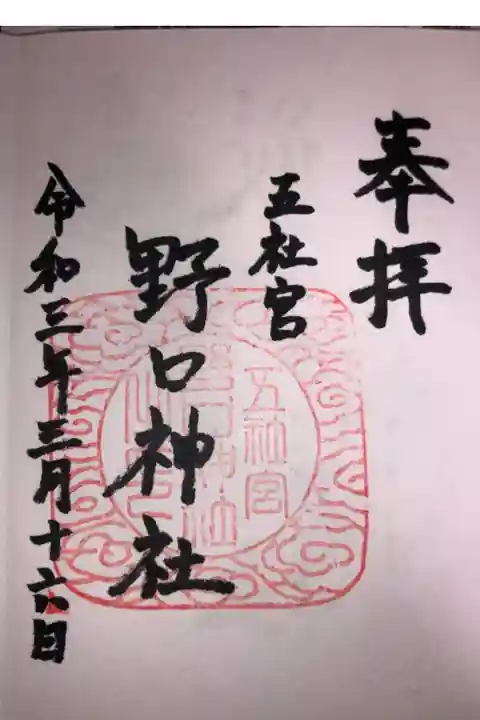 奉拝
五社宮
野口神社
令和三年三月十六日
五社宮